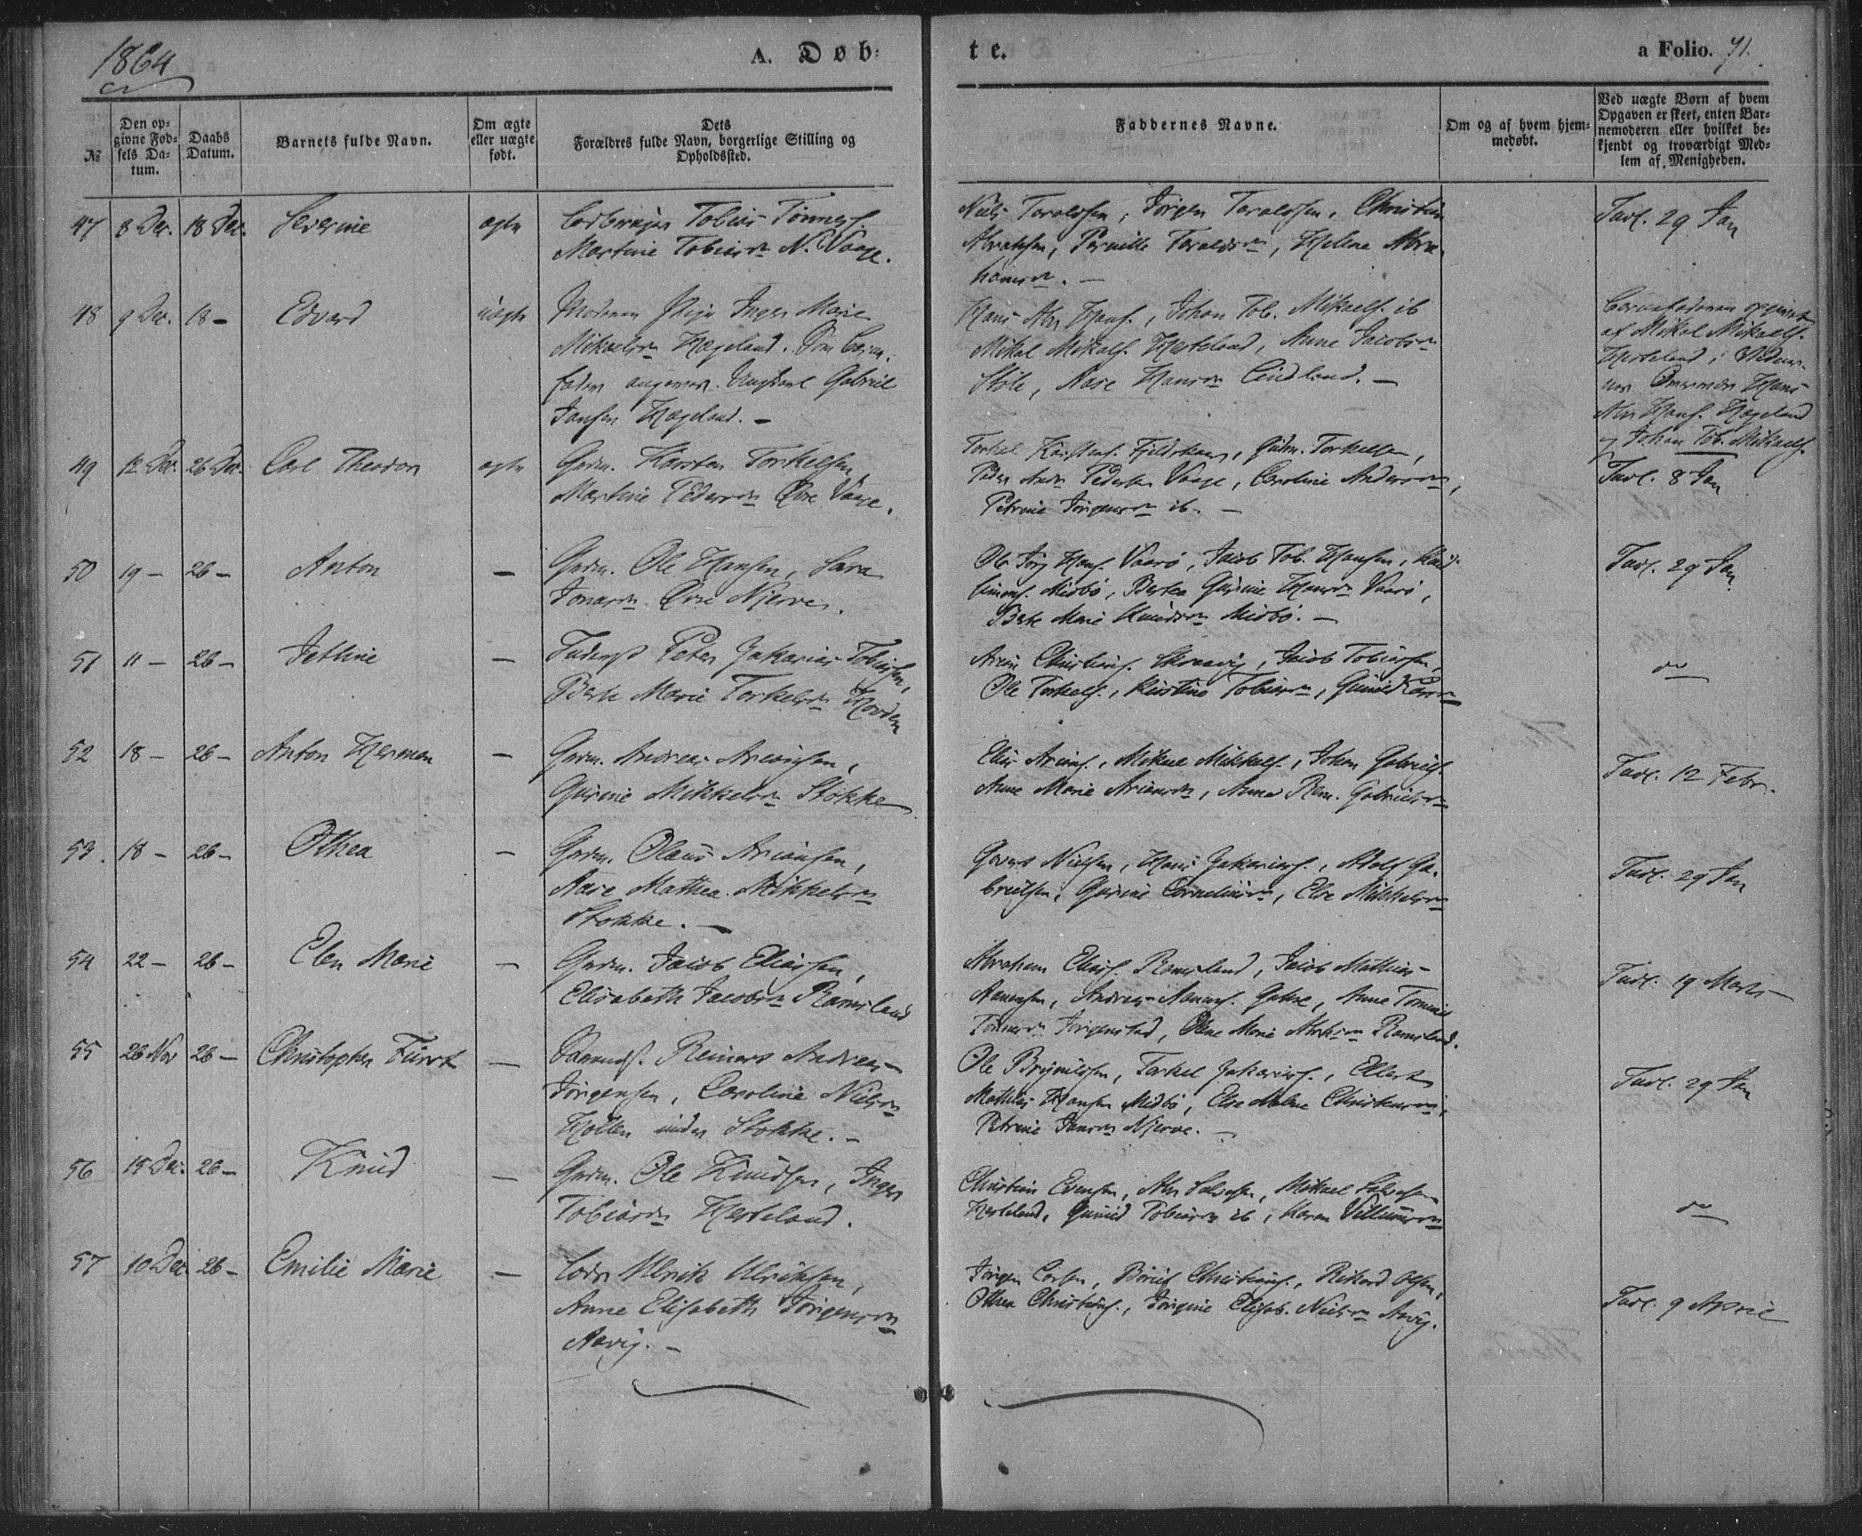 1864
A. Døb-
te.
a Folio. 71.
№
Den op-
givne Fød-
sels Da-
tum.
Daabs
Datum.
Barnets fulde Navn.
Om ægte
eller uægte
født.
Dets
Forældres fulde Navn, borgerlige Stilling og
Opholdssted.
Faddernes Navne.
Om og af hvem hjem-
medøbt.
Ved uægte Børn af hvem
Opgaven er skeet, enten Bar-
nemoderen eller hvilket be-
kjendt og troværdigt Med-
lem af Menigheden.
47 8 Dec. 18 Dec. Severine ægte Tobias Tønnesf.
Martine Tobiasdn N. Vaage.
Niels Taraldsen, Jørgen Taraldsen, Christian
Abrahsen, Pernille Taraldsdn, Helene Abra-
hamsdn. —
Tavl. 29 Jan
48 9 Dec. 18 — Edvard uægte Pige Inger Marie
Mikaelsdn Hægeland. Som Barne-
fader angiven Ungkarl Gabriel
Jansen Hægeland. —
Hans Abr Hansf., Johan Tob. Mikaelsf. ib
Mikal Mikalsf. Herteland, Anne Jacobsdn
Støle, Aase Hansdn Lindland. —
Barnefaderen opgivet
af Mikal Mikaelsf.
Herteland; Hans
Abr Hansf. Hægeland
og Johan Tob. Mikaelsf.
49 12 Dec. 26 Dec. Carl Theodor ægte Gaardm. Karsten Torkelsen,
Martine Pedersdn Øvre Vaage.
Torkel Karstensf. Fjeldskaar, Gudm. Torkelsen,
Peder Andr Pedersen Vaage, Caroline Andersdn,
Petrine Jørgensdn ib. —
Tavl. 8 Jan
50 19 — 26 — Anton — Gaardm. Ole Hansen, Sara
Jonasdn Øvre Njerve.
Ole Jørg Hansf. Vaarø, Jacob Tob. Hansen, Knud
Simonsf. Midbø, Bertea Gurine Hansdn Vaarø,
Berte Marie Knudsdn Midbø. —
Tavl. 29 Jan
51 11 — 26 — Jethine — Peter Zakarias Tobiasen,
Berte Marie Torkelsdn Hovden
Arian Christiansf. Skraavig, Jacob Tobiassen,
Ole Torkelsf., Kirstine Tobiasdn, Gunild Larsdn
do
52 18 — 26 — Anton Herman — Gaardm. Andreas Ariansen,
Gurine Mikkelsdn Stokke
Elias Ariansf., Mikael Mikkelsf., Johan Gabrielsf.
Anne Marie Ariansdn, Anne Ram. Gabrielsdn
Tavl. 12 Febr.
53. 18 — 26 — Othea — Gaardm. Olaus Ariansen,
Aase Mathea Mikkelsdn
Stokke. —
Nielsen, Hans Zakariasf., Adolf Ga-
brielsen, Gurine Corneliusdn, Else Mikkelsdn
Tavl. 29 Jan
54 22 — 26 — Elen Marie — Gaardm. Jacob Eliassen,
Elisabeth Jacobsdn Ramsland
Abraham Eliasf. Ramsland, Jacob Mathias
Aanensen, Andreas Aanensf. Gahre, Anne Tomine
Tønnesdn Jørgenstad, Oline Marie Abrahdn Ramsland.
Tavl. 19 Marts
55 26 Nov 26 — Christopher Fürst — Reinert Andreas
Jørgensen, Caroline Nielsdn
Hollen under Stokke. —
Ole Brynildsen, Torkel Zakariasf., Ellert
Mathias Hansen Midbø, Else Malene Christensdn,
Petrine Jansdn Njerve. —
Tavl. 29 Jan
56 15 Dec. 26 — Knud — Gaardm. Ole Knudsen, Inger
Tobiasdn Herteland.
Christian Evensen, Abr Salvesen, Mikael Salvesen
Herteland, Gunild Tobiasdn ib, Karen Villumsdn
do
57 10 Dec. 26 — Emilie Marie — Lods Ulrik Ulriksen,
Anne Elisabeth Jørgensdn
Aavig. —
Jørgen Larsen, Børild Christiansf., Rikard Olsen,
Othea Christiansf., Jørgine Elisab. Nielsdn Aavig.
Tavl. 9 April